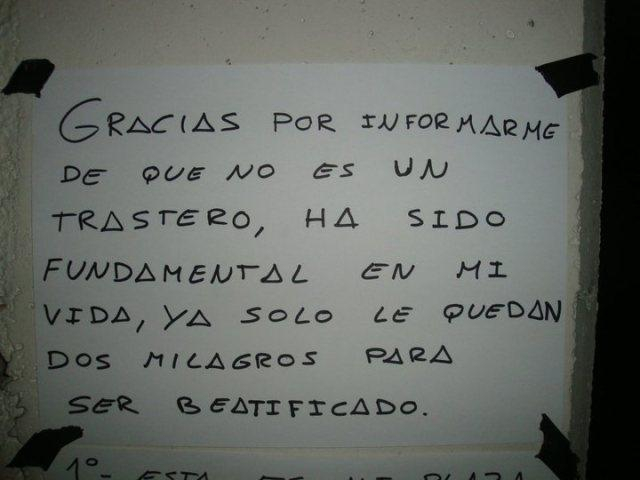 GRACIAS POR INFORMARME
DE QUE NO ES UN
TRASTERO, HA SIDO
FUNDAMENTAL EN MI
VIDA, YA SOLO LE QUEDAN
DOS MILAGROS PARA
SER BEATIFICADO.
1º- ESTA ES MI PLAZA